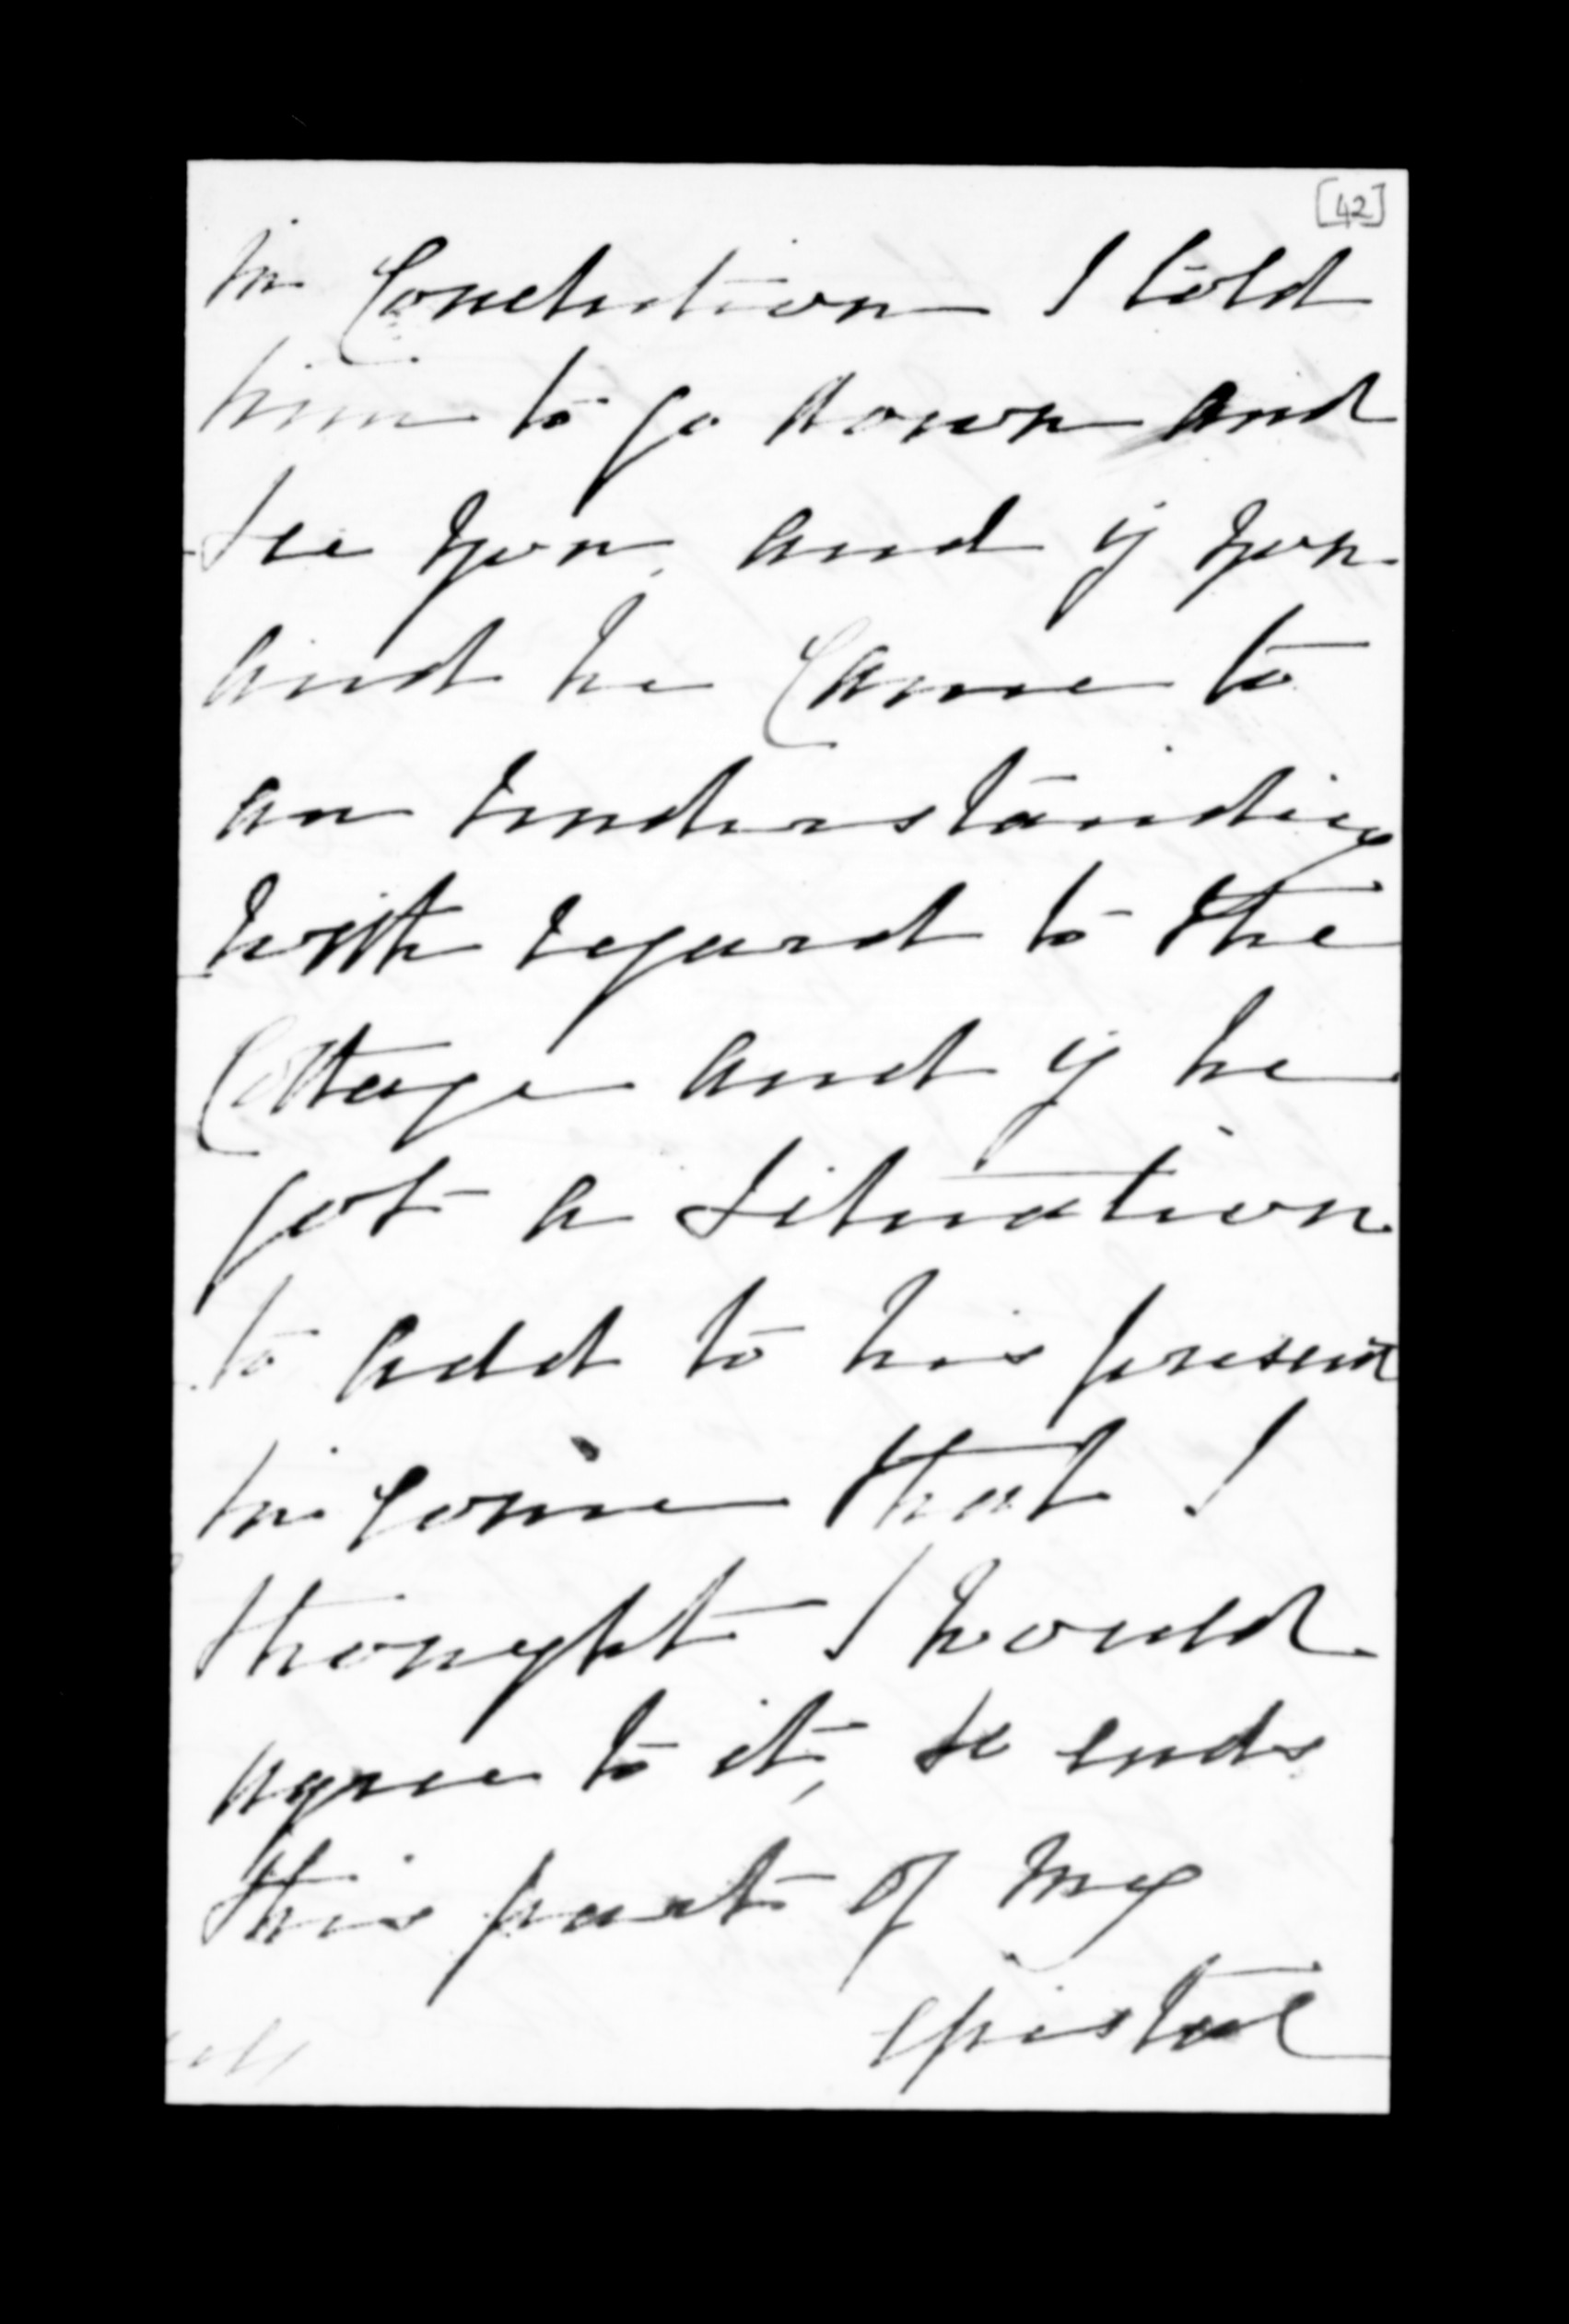 [42]
in Conclution I told
him to go down and
see you, and if you
and he Came to
an understanding
with regard to the
Cottage and if he
got a Situation
to add to his present
in come that I
thought I would
agree to it, so ends
this part of my
epistal